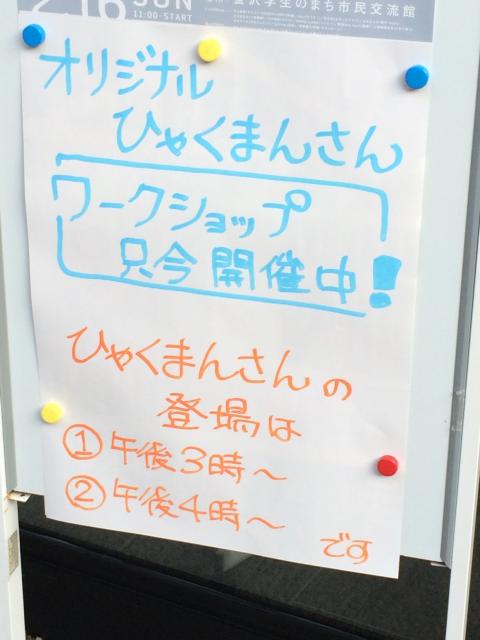 2.16 SUN
11:00-START
金沢学生のまち市民交流館
オリジナル
ひゃくまんさん
ワークショップ
只今開催中!
ひゃくまんさんの
登場は
①午後3時～
②午後4時～
です